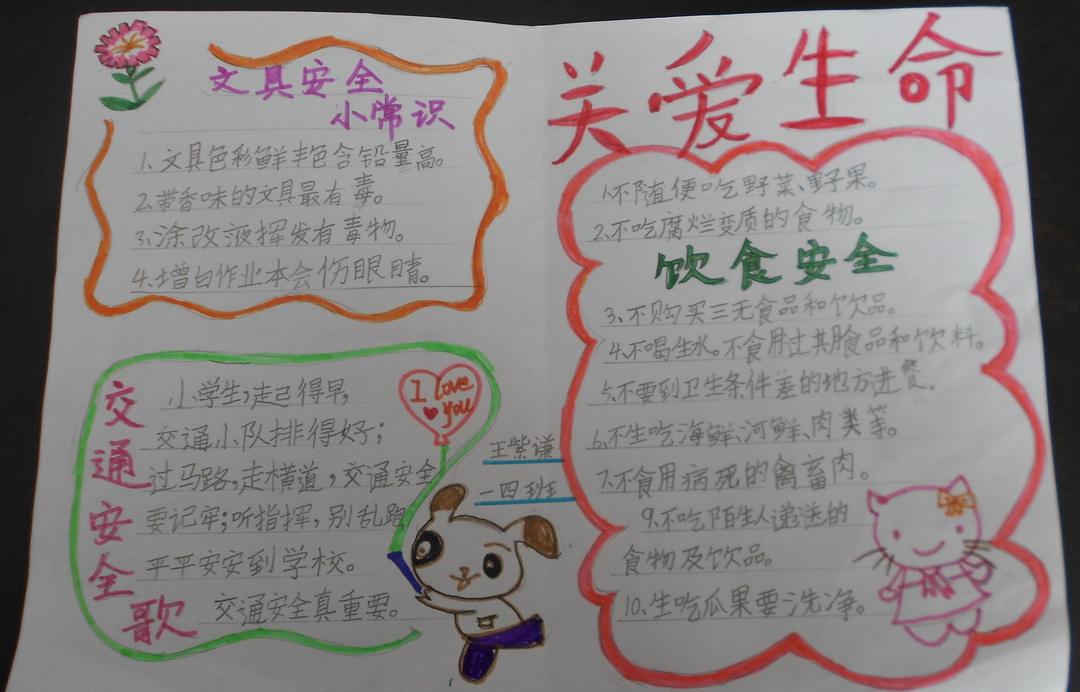 文具安全
小常识
1、文具色彩鲜丰色含铅量高。
2、带香味的文具最有毒。
3、涂改液挥发有毒物。
4、增白作业本会伤眼睛。
交通安全歌
小学生,走己得早,
交通小队排得好;
过马路,走横道,交通安全
要记牢;听指挥,别乱跑
平平安安到学校。
交通安全真重要。
I love
you
王紫谦
一四班
关爱生命
1、不随便吃野菜、野果。
2、不吃腐烂变质的食物。
饮食安全
3、不购买三无食品和饮品。
4、不喝生水。不食用过其月食品和饮料。
5、不要到卫生条件差的地方进餐。
6、不生吃海鲜、河鲜、肉类等。
7、不食用病死的禽畜肉。
9、不吃陌生人递送的
食物及饮品。
10、生吃瓜果要洗净。